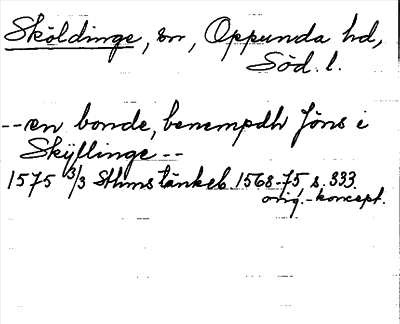 Sköldinge, sn, Oppunda hd,
Söd. l.
-- en bonde, benempdh Jöns i
Skÿllinge --
1575 3/3 Sthms tänkeb. 1568-75 s. 333.
orig.-koncept.